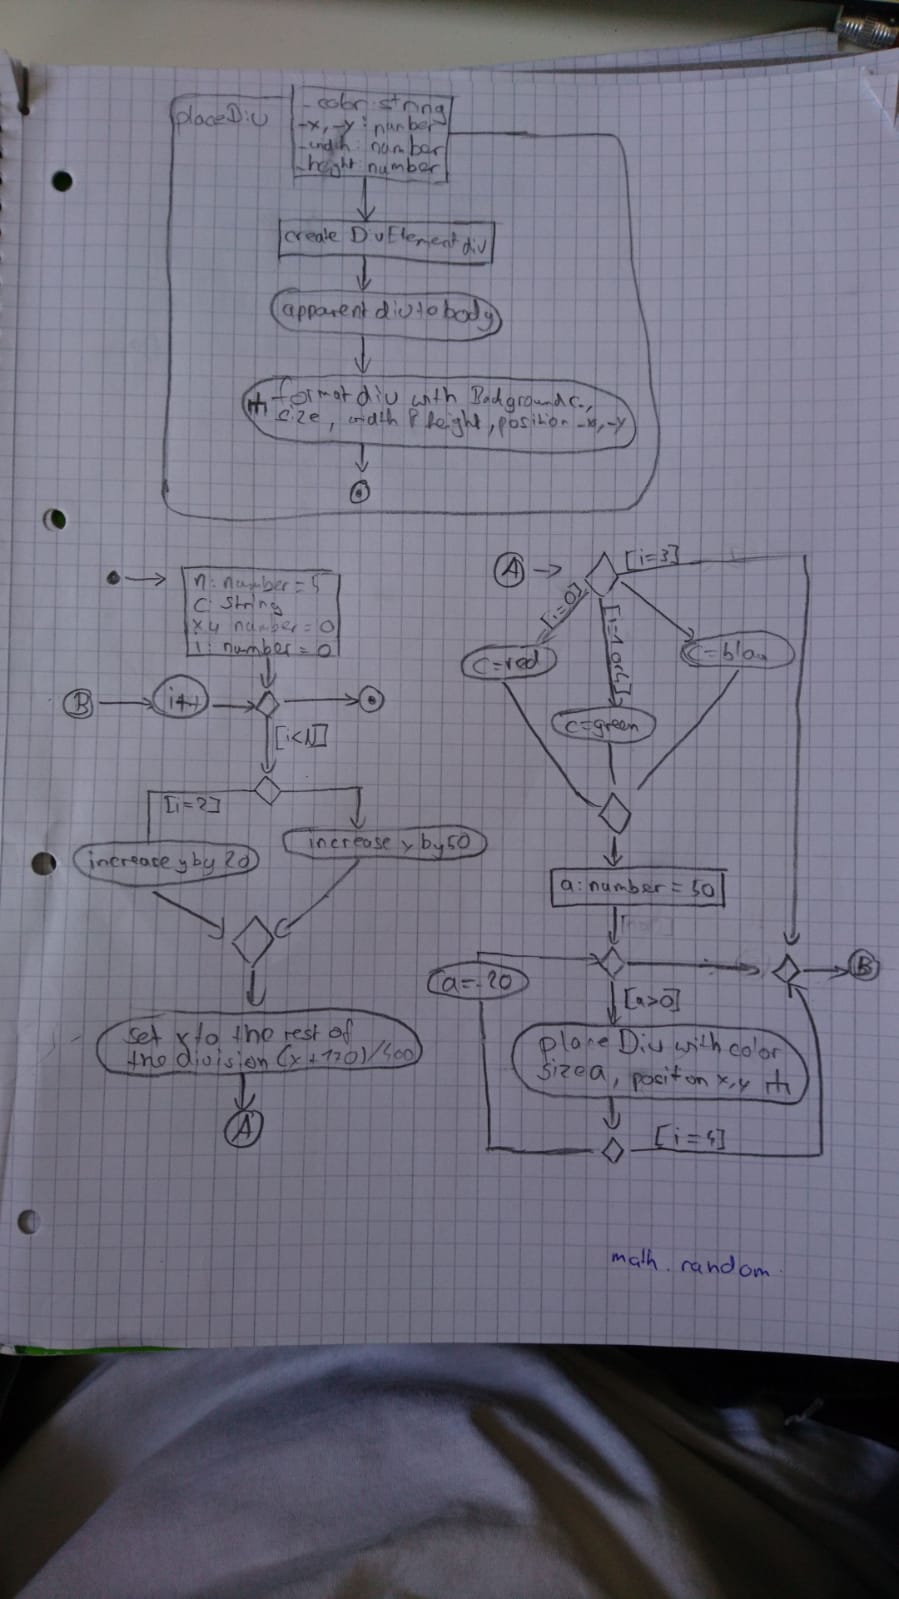 placeDiv
_color: string
-x, -y: number
_width: number
_height: number
create DivElement div
apparent div to body
format div with Background c.,
size, width & height, position -x, -y
n: number = 5
c: string
xy number = 0
i: number = 0
B
i++
[i<n]
[i=2]
increase y by 20
increase y by 50
set x to the rest of
the division (x+170)/400
A
A
[i=3]
[i=0]
[i=1 or 4]
c=red
c=green
a: number = 50
a=-20
B
[a>0]
place Div with color
size a, positon x,y
[i=4]
math.random